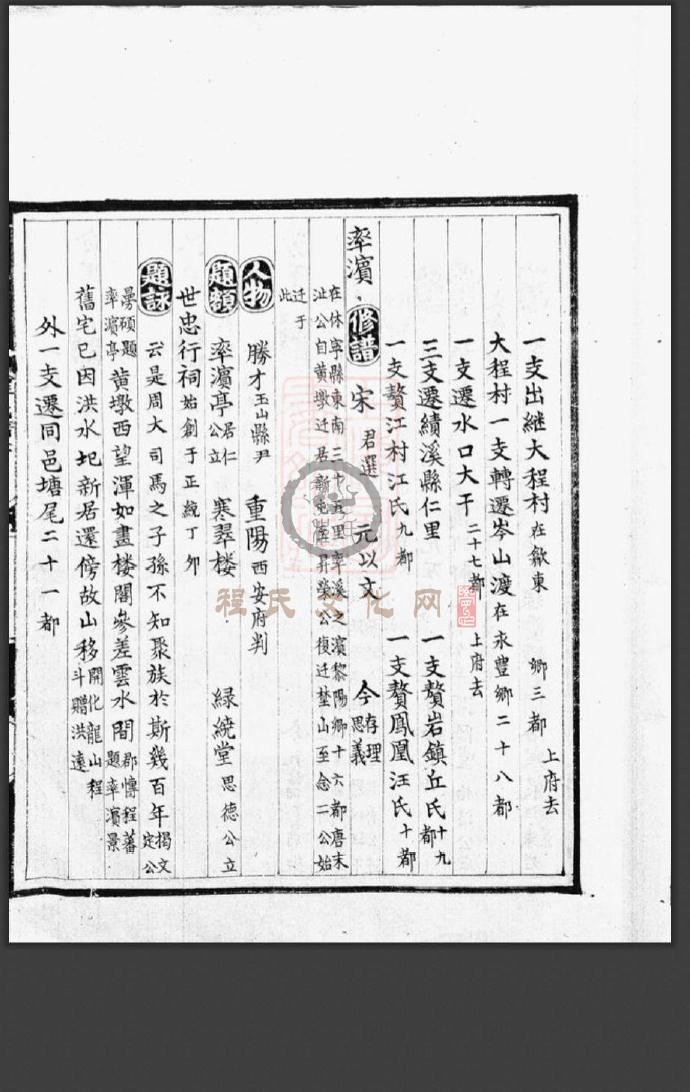 一支出継大程村在歙東　鄉三都　上府去
大程村一支轉遷岑山渡在永豊鄉二十八都
一支遷水口大干二十七都　上府去
三支遷績溪縣仁里　一支贅岩鎮丘氏十九都
一支贅江村江氏九都　一支贅鳳凰汪氏十都
率濱　修譜　宋君選　元以文　今存理思義
在休寧縣東南三十五里率溪之濱黎陽鄉十六都唐末
沚公自黄墩迁居　昇榮公復迁　山至念二公始
迁于此
人物　勝才玉山縣尹　重陽西安府判
題額　率濱亭居仁公立　寒翠楼　緑繞堂思德公立
世忠行祠始創于正統丁卯
題詠　云是周大司馬之子孫不知聚族於斯幾百年揭文定公
晏碩題率濱亭　黄墩西望渾如畫楼閣參差雲水間郡慱程蕃題率濱景
舊宅已因洪水圮新居還傍故山移開化龍山程斗贈洪遠
外一支遷同邑塘尾二十一都
程氏文化网